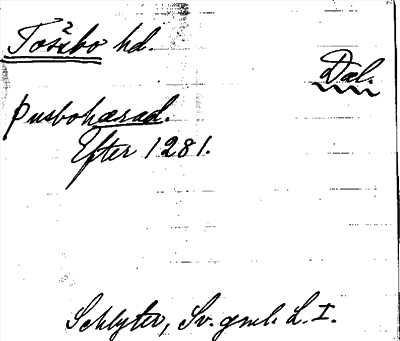 Tössbo hd.
Dal.
Þusbohærad.
Efter 1281.
Schlyter, Sv. gml. L. I.